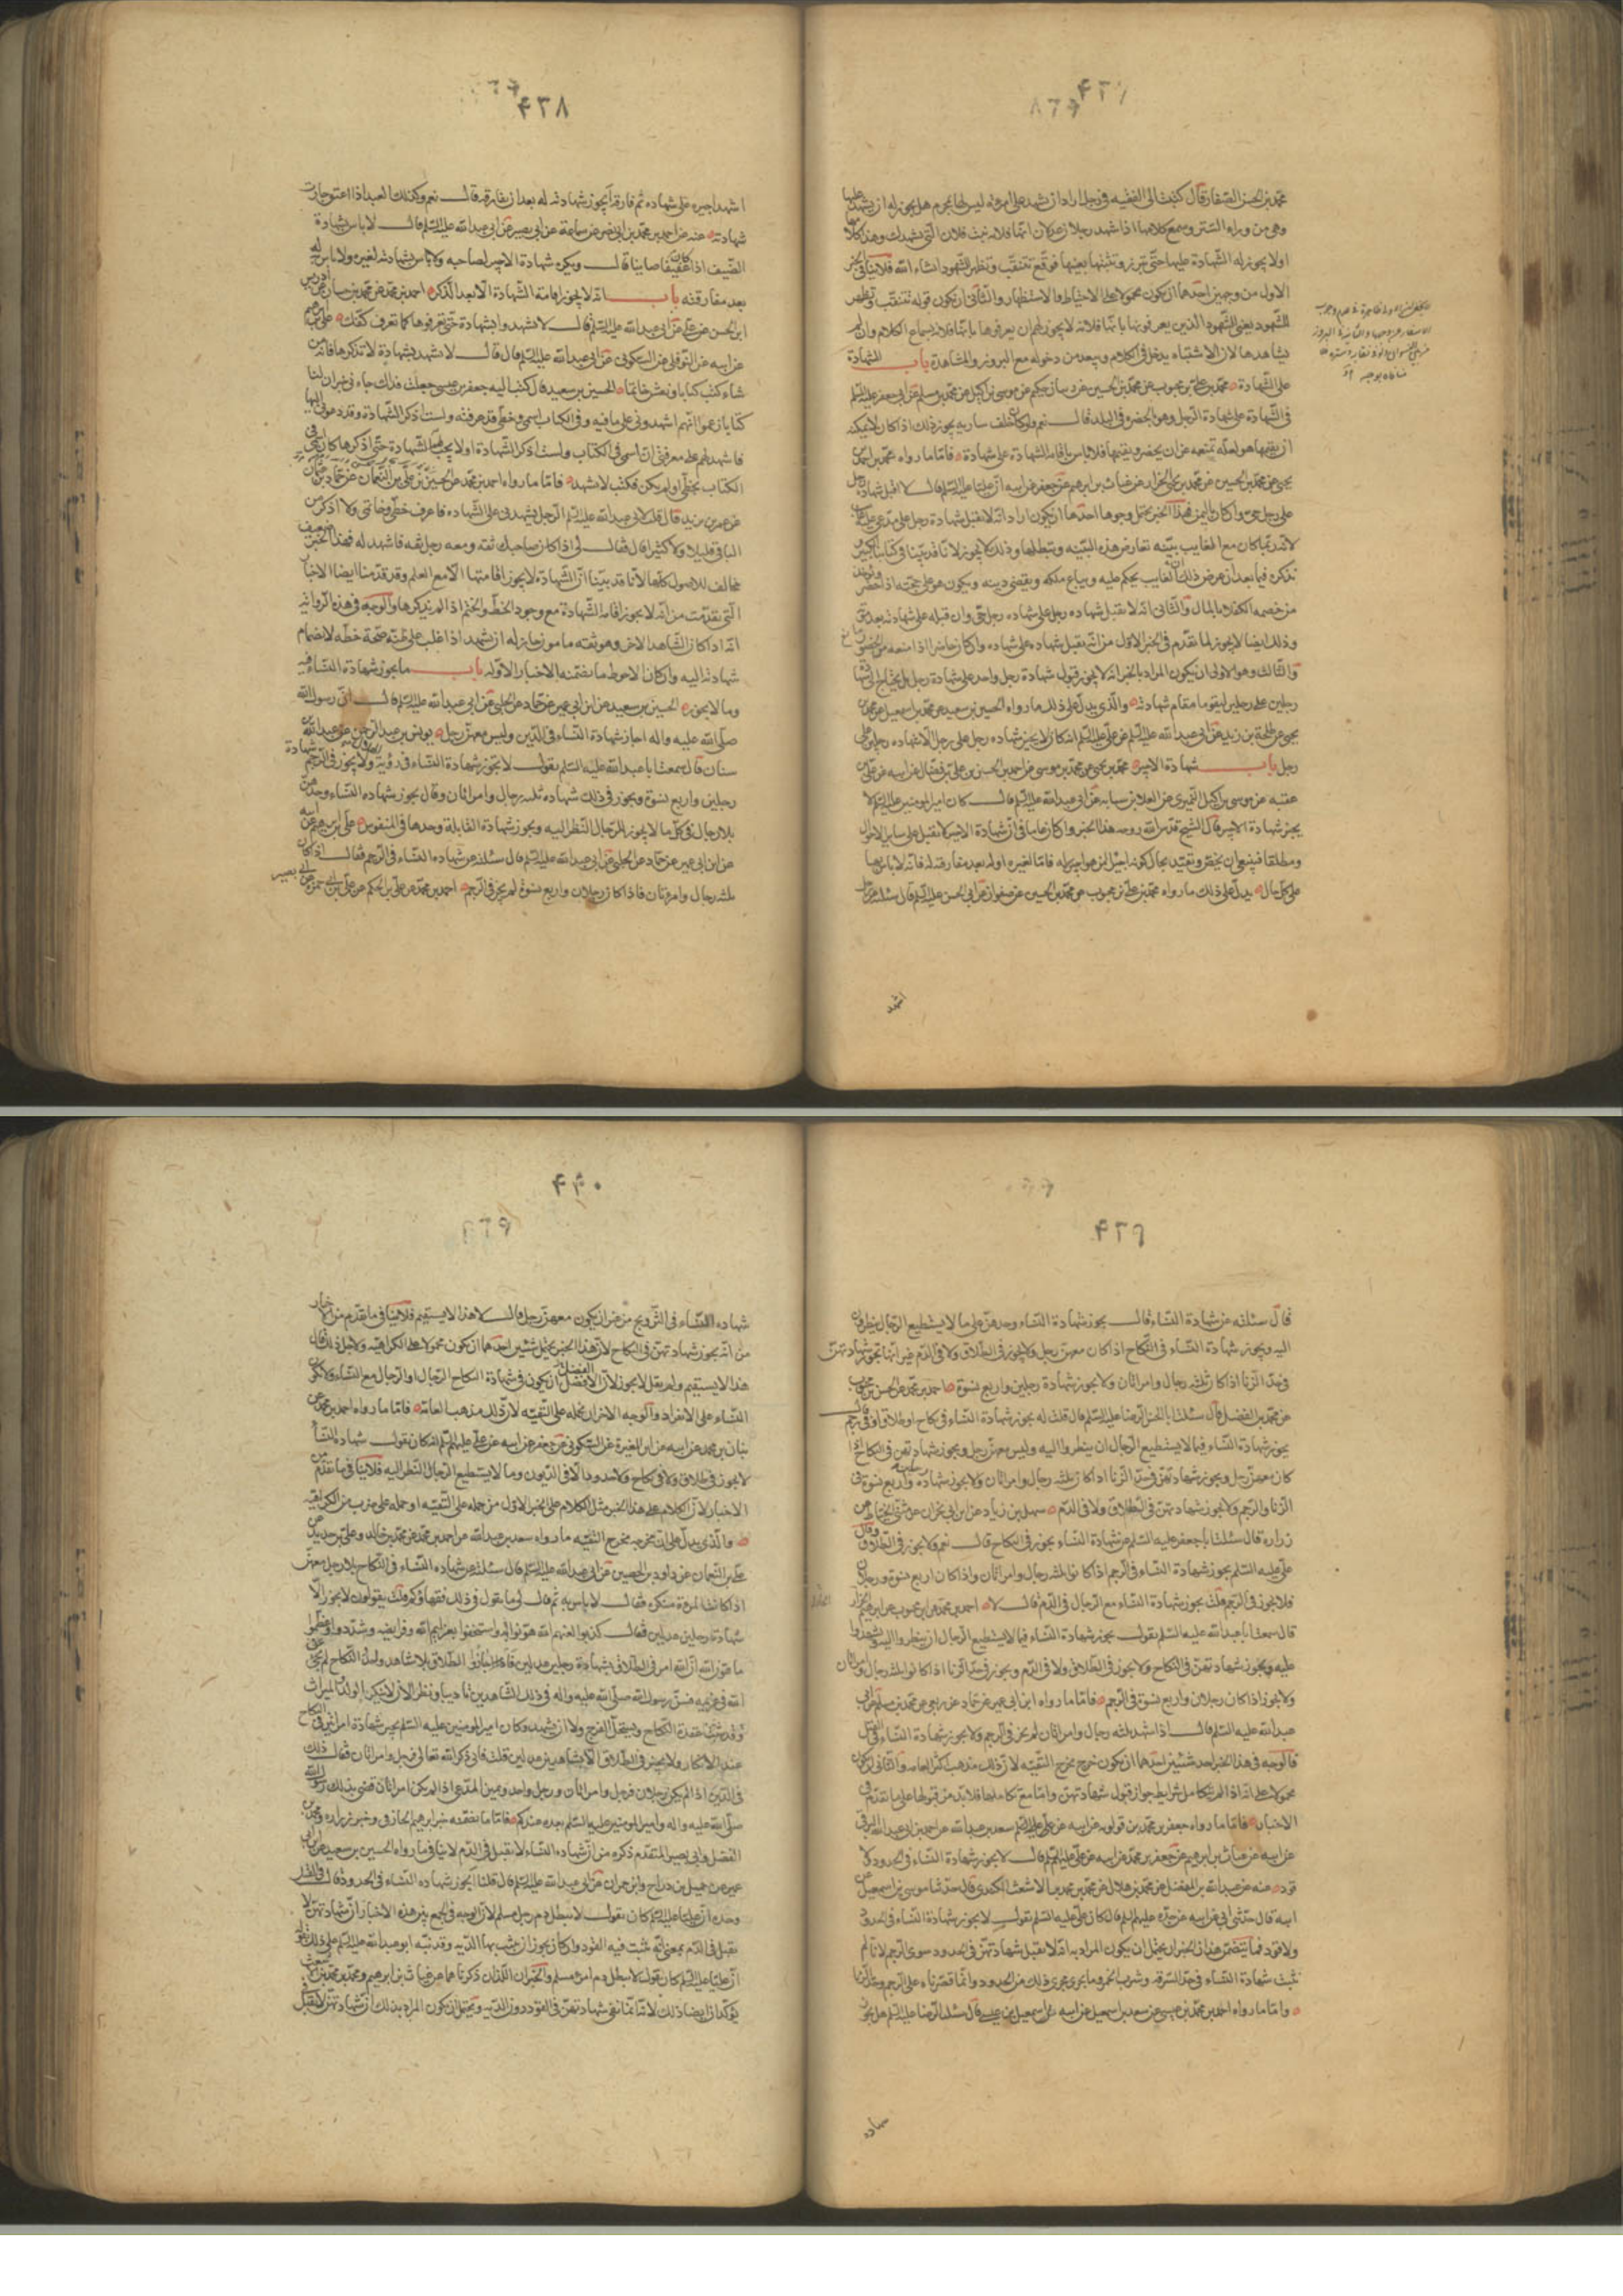 ۴۳۷
محمد بن الحسن الصفار قال كتبت الى الفقيه فى رجل اراد ان يشهد على امرءة ليس لها بمحرم هل يجوز له ان يشهد عليها
وهى من وراء الستر ويسمع كلامها اذا شهد رجلان عدلان انها فلانه بنت فلان التى تشهدك وهذا كلامها
او لا يجوز له الشهادة عليها حتى تبرز وتثبتها بعينها فوقع تتنقب وتظهر للشهود انشاء الله فلا ينافى الخبر
الاول من وجهين احدهما ان يكون محمولا على الاحتياط والاستظهار والثانى ان يكون قوله تتنقب وتظهر
للشهود يعنى للشهود الذين يعرفونها بانها فلانه لا يجوز لهم ان يعرفوها بانها فلانه بسماع الكلام وان لم
يشاهدها لان الاشتباه يدخل فى الكلام ويبعد من دخوله مع البروز والمشاهدة باب الشهادة
على الشهادة محمد بن على بن محبوب عن محمد بن الحسين عن ذبيان بن حكيم عن موسى بن اكيل عن محمد بن مسلم عن ابى جعفر عليه السلم
فى الشهادة على شهادة الرجل وهو بالحضرة فى البلد قال نعم ولو كان خلف سارية يجوز ذلك اذا كان لا يمكنه
ان يقيمها هو لعلة تمنعه عن ان يحضر ويقيمها فلا باس باقامة الشهادة على شهادة فاما ما رواه محمد بن احمد بن
يحيى عن محمد بن الحسين عن محمد بن يحيى الخزاز عن غياث بن ابرهيم عن جعفر عن ابيه ان عليا عليه السلم قال لا اقبل شهادة رجل
على رجل حى وان كان باليمن فهذا الخبر يحتمل وجوها احدها ان يكون اراد انه لا تقبل شهادة رجل على مدعى عليه غايب
لانه ربما كان مع الغايب بينه تعارض هذه البينه وتبطلها وذلك لا يجوز لانا قد بينا فى كتابنا الكبير
نذكره فيما بعد ان عرض ذلك ان الغايب يحكم عليه ويباع ملكه ويقضى دينه ويكون هو على حجته اذا حضر ويؤخذ
من خصمه الكفلاء بالمال والثانى انه لا تقبل شهادة رجل على شهاده رجل حى وان قبله على شهادته بعد موته
وذلك ايضا لا يجوز لما تقدم فى الخبر الاول من انه تقبل شهاده على شهاده وان كان حاضرا اذا منعه من الحضور
والثالث وهو الاولى ان يكون المراد بالخبر انه لا يجوز قبول شهادة رجل واحد على شهادة رجل بل يحتاج الى شهادة
رجلين على رجل ليقوما مقام شهادته والذى يدل على ذلك ما رواه الحسين بن سعيد عن محمد بن اسمعيل عن محمد بن
يحيى عن طلحة بن زيد عن ابى عبد الله عليه السلم عن على عليه السلم انه كان لا يجيز شهاده رجل على رجل الا شهاده رجلين على
رجل باب شهادة الاجير محمد بن يحيى عن محمد بن موسى عن احمد بن الحسن بن على بن فضال عن ابيه عن على بن
عقبه عن موسى بن اكيل النميرى عن العلا بن سيابه عن ابى عبد الله عليه السلم قال كان امير المومنين عليه السلم لا
يجيز شهادة الاجير قال الشيخ قدس الله روحه هذا الخبر وان كان عاما فى ان شهادة الاجير لا تقبل على ساير الاحوال
ومطلقا فينبغى ان يخص ويقيد بحال كونه اجيرا لمن هو اجير له فاما لغيره او له بعد مفارقته له فانه لا باس بها
على كل حال يدل على ذلك ما رواه محمد بن على بن محبوب عن محمد بن الحسين عن صفوان عن ابى الحسن عليه السلم قال سئلته عن رجل
اشهد
۴۳۸
اشهد اجيره على شهاده ثم فارقه أيجوز شهادته له بعد ان يفارقه قال نعم وكذلك العبد اذا اعتق جازت
شهادته عنه عن احمد بن محمد بن ابى نصر عن سماعة عن ابى بصير عن ابى عبد الله عليه السلم قال لا باس بشهادة
الضيف اذا كان عفيفا صاينا قال ويكره شهادة الاجير لصاحبه ولا باس بشهادته لغيره ولا باس به له
بعد مفارقته باب انه لا يجوز اقامة الشهادة الا بعد الذكر احمد بن محمد عن محمد بن حسان عن ادريس بن
ابى الحسن عن على عن ابى عبد الله عليه السلم قال لا تشهدوا بشهادة حتى تعرفوها كما تعرف كفك على بن ابرهيم
عن ابيه عن النوفلى عن السكونى عن ابى عبد الله عليه السلم قال قال لا تشهد بشهادة لا تذكرها فانه من
شاء كتب كتابا ونقش خاتما الحسين بن سعيد قال كتب اليه جعفر بن عيسى جعلت فداك جاءنى جيران لنا
كتاب زعموا انهم اشهدونى على ما فيه وفى الكتاب اسمى وخطى قد عرفته ولست اذكر الشهادة وقد دعونى اليها
فاشهد لهم على معرفتى ان اسمى فى الكتاب ولست اذكر الشهادة او لا يجب لهم الشهادة حتى اذكرها كان اسمى فى
الكتاب بخطى او لم يكن فكتب لا تشهد فاما ما رواه احمد بن محمد عن الحسن بن على بن النعمان عن حماد بن عثمان
عن عمر بن يزيد قال قلت لابى عبد الله عليه السلم الرجل يشهدنى على الشهاده فاعرف خطى وخاتمى ولا اذكر من
الباقى قليلا ولا كثيرا قال فقال لى اذا كان صاحبك ثقه ومعه رجل ثقه فاشهد له فهذا الخبر ضعيف
مخالف للاصول كلها لانا قد بينا ان الشهادة لا يجوز اقامتها الا مع العلم وقد قدمنا ايضا الاخبار
التى تقدمت من انه لا يجوز اقامة الشهادة مع وجود الخط والختم اذا لم يذكرها والوجه فى هذه الرواية
انه اذا كان الشاهد الاخر وهو ثقه مامون جاز له ان يشهد اذا غلب على ظنه صحة خطه لانضمام
شهادته اليه وان كان الاحوط ما تضمنه الاخبار الاوله باب ما يجوز شهادة النساء فيه
وما لا يجوز الحسين بن سعيد عن ابن ابى عمير عن حماد عن الحلبى عن ابى عبد الله عليه السلم قال ان رسول الله
صلى الله عليه واله اجاز شهادة النساء فى الدين وليس معهن رجل يونس بن عبد الرحمن عن عبد الله بن
سنان قال سمعت ابا عبد الله عليه السلم يقول لا تجوز شهادة النساء فى رؤية الهلال ولا يجوز فى الرجم شهادة
رجلين واربع نسوة ويجوز فى ذلك شهاده ثلثه رجال وامراتان وقال يجوز شهاده النساء وحدهن
بلا رجال فى كل ما لا يجوز للرجال النظر اليه ويجوز شهادة القابلة وحدها فى المنفوس على بن ابرهيم عن ابيه
عن ابن ابى عمير عن حماد عن الحلبى عن ابى عبد الله عليه السلم قال سئلته عن شهاده النساء فى الرجم فقال اذا كان
ثلثه رجال وامرءتان فاذا كان رجلان واربع نسوة لم يجز فى الرجم احمد بن محمد عن على بن الحكم عن على بن ابى حمزه عن ابى بصير
۴۳۹
قال سئلته عن شهادة النساء قال يجوز شهادة النساء وحدهن على ما لا يستطيع الرجال ينظرون
اليه ويجوز شهادة النساء فى النكاح اذا كان معهن رجل ولا يجوز فى الطلاق ولا فى الدم غير انها تجوز شهادتهن
فى حد الزنا اذا كان ثلثه رجال وامراتان ولا يجوز شهادة رجلين واربع نسوة احمد بن محمد عن الحسن بن محبوب
عن محمد بن الفضيل قال سئلت ابا الحسن الرضا عليه السلم قال قلت له يجوز شهادة النساء فى نكاح او طلاق او فى رجم قال
يجوز شهادة النساء فيما لا يستطيع الرجال ان ينظروا اليه وليس معهن رجل ويجوز شهادتهن فى النكاح اذا
كان معهن رجل ويجوز شهادتهن فى حد الزنا اذا كان ثلثه رجال وامراتان ولا يجوز شهادة رجلين واربع نسوة فى
الزنا والرجم ولا يجوز شهادتهن فى الطلاق ولا فى الدم سهل بن زياد عن ابن ابى نجران عن مثنى الحناط عن
زراره قال سئلت ابا جعفر عليه السلم عن شهادة النساء يجوز فى النكاح قال نعم ولا يجوز فى الطلاق وقال
على عليه السلم يجوز شهادة النساء فى الرجم اذا كانوا ثلثه رجال وامراتان واذا كان اربع نسوة ورجلان
فلا يجوز فى الرجم قلت يجوز شهادة النساء مع الرجال فى الدم قال لا احمد بن محمد عن ابن محبوب عن ابرهيم الخارقى
قال سمعت ابا عبد الله عليه السلم يقول يجوز شهادة النساء فيما لا يستطيع الرجال ان ينظروا اليه ويشهدوا
عليه ويجوز شهادتهن فى النكاح ولا يجوز فى الطلاق ولا فى الدم ويجوز فى حد الزنا اذا كانوا ثلثه رجال وامراتان
ولا يجوز اذا كان رجلان واربع نسوة فى الرجم فاما ما رواه ابن ابى عمير عن حماد عن ربعى عن محمد بن مسلم عن ابى
عبد الله عليه السلم قال اذا شهد ثلثه رجال وامراتان لم يجز فى الرجم ولا يجوز شهادة النساء فى القتل
فالوجه فى هذا الخبر احد شيئين احدهما ان يكون خرج مخرج التقية لان ذلك مذهب اكثر العامه والثانى ان يكون
محمولا على انه اذا لم يتكامل شرايط جواز قبول شهادتهن واما مع تكاملها فلا بد من قبولها على ما تقدم فى
الاخبار فاما ما رواه جعفر بن محمد بن قولويه عن ابيه عن على عليه السلم سعد بن عبد الله عن احمد بن ابى عبد الله البرقى
عن ابيه عن غياث بن ابرهيم عن جعفر بن محمد عن ابيه عن على عليه السلم قال لا يجوز شهادة النساء فى الحدود ولا
قود عنه عن عبد الله بن المفضل عن محمد بن هلال عن محمد بن محمد بن الاشعث الكندى قال حدثنا موسى بن اسمعيل عن
ابيه قال حدثنى ابى عن ابيه عن جده عليهم السلم قال كان على عليه السلم يقول لا يجوز شهادة النساء فى الحدود
ولا قود فما يتضمن هذان الخبران يحتمل ان يكون المراد به انه لا تقبل شهادتهن فى الحدود سوى الرجم لانا لم
نثبت شهادة النساء فى حد السرقه وشرب الخمر وما يجرى مجرى ذلك من الحدود وانما قصرناه على الرجم وحد الزنا
واما ما رواه احمد بن محمد بن عيسى عن سعد بن اسمعيل عن ابيه اسمعيل بن عيسى قال سئلت الرضا عليه السلم هل يجوز
شهادة
۴۴۰
شهاده النساء فى التزويج من غير ان يكون معهن رجل قال لا هذا لا يستقيم فلا ينافى ما تقدم من الاخبار
من انه يجوز شهادتهن فى النكاح لان هذا الخبر يحتمل شيئين احدهما ان يكون محمولا على الكراهية ولاجل ذلك قال
هذا لا يستقيم ولم يقل لا يجوز لان الافضل ان يكون فى شهادة النكاح الرجال او الرجال مع النساء ولا يكون
النساء على الانفراد والوجه الاخر ان نحمله على التقيه لان ذلك مذهب العامه فاما ما رواه احمد بن محمد عن
بنان بن محمد عن ابيه عن ابن المغيرة عن السكونى عن جعفر عن ابيه عن على عليهم السلم انه كان يقول شهاده النساء
لا يجوز فى طلاق ولا فى نكاح ولا حدود الا فى الديون وما لا يستطيع الرجال النظر اليه فلا ينافى ما تقدم من
الاخبار لان الكلام على هذا الخبر مثل الكلام على الخبر الاول من حمله على التقيه او حمله على ضرب من الكراهيه
والذى يدل على انه خرج مخرج التقيه ما رواه سعد بن عبد الله عن احمد بن محمد عن محمد بن خالد وعلى بن حديد عن
على بن النعمان عن داود بن الحصين عن ابى عبد الله عليه السلم قال سئلته عن شهاده النساء فى النكاح بلا رجل معهن
اذا كانت المرءة منكره فقال لا باس به ثم قال لى ما يقول فى ذلك فقهاؤكم قلت يقولون لا يجوز الا
شهادة رجلين عدلين فقال كذبوا لعنهم الله هونوا واستخفوا بعزايم الله وفرايضه وشددوا وعظموا
ما هون الله ان الله امر فى الطلاق بشهادة رجلين عدلين فاجازوا الطلاق بلا شاهد واحد والنكاح لم يجئ عن
الله فى عزيمه فسن رسول الله صلى الله عليه واله فى ذلك الشاهدين تاديبا ونظرا لان لا ينكر الولد والميراث
وقد ثبت عقدة النكاح ويستحل الفرج ولا ان يشهد وكان امير المومنين عليه السلم يجيز شهادة امراتين فى النكاح
عند الانكار ولا يجيز فى الطلاق الا شاهدين عدلين قلت فانى ذكر الله تعالى فرجل وامراتان فقال ذلك
فى الدين اذا لم يكن رجلان فرجل وامراتان ورجل واحد ويمين المدعى اذا لم يكن امراتان قضى بذلك رسول الله
صلى الله عليه واله وامير المومنين عليه السلم بعده عندكم فاما ما تضمنه خبر ابرهيم الخارقى وخبر زراره ومحمد بن
الفضيل وابى بصير المتقدم ذكره من ان شهاده النساء لا تقبل فى الدم لا ينافى ما رواه الحسين بن سعيد عن ابن ابى
عمير عن جميل بن دراج وابن حمران عن ابى عبد الله عليه السلم قال قلنا أيجوز شهاده النساء فى الحدود قال فى القتل
وحده ان عليا عليه السلم كان يقول لا يبطل دم رجل مسلم لان الوجه فى الجمع بين هذه الاخبار ان شهادتهن لا
تقبل فى الدم بمعنى انه يثبت فيه القود وان كان يجوز ان يثبت بها الديه وقد نبه ابو عبد الله عليه السلم على ذلك بقوله
ان عليا عليه السلم كان يقول لا يبطل دم امرء مسلم والخبران اللذان ذكرناهما عن غياث بن ابرهيم ومحمد بن محمد بن الاشعث
يؤكدان ايضا ذلك لانه انما نفى شهادتهن فى القود دون الديه ويحتمل ان يكون المراد بذلك ان شهادتهن لا تقبل فى